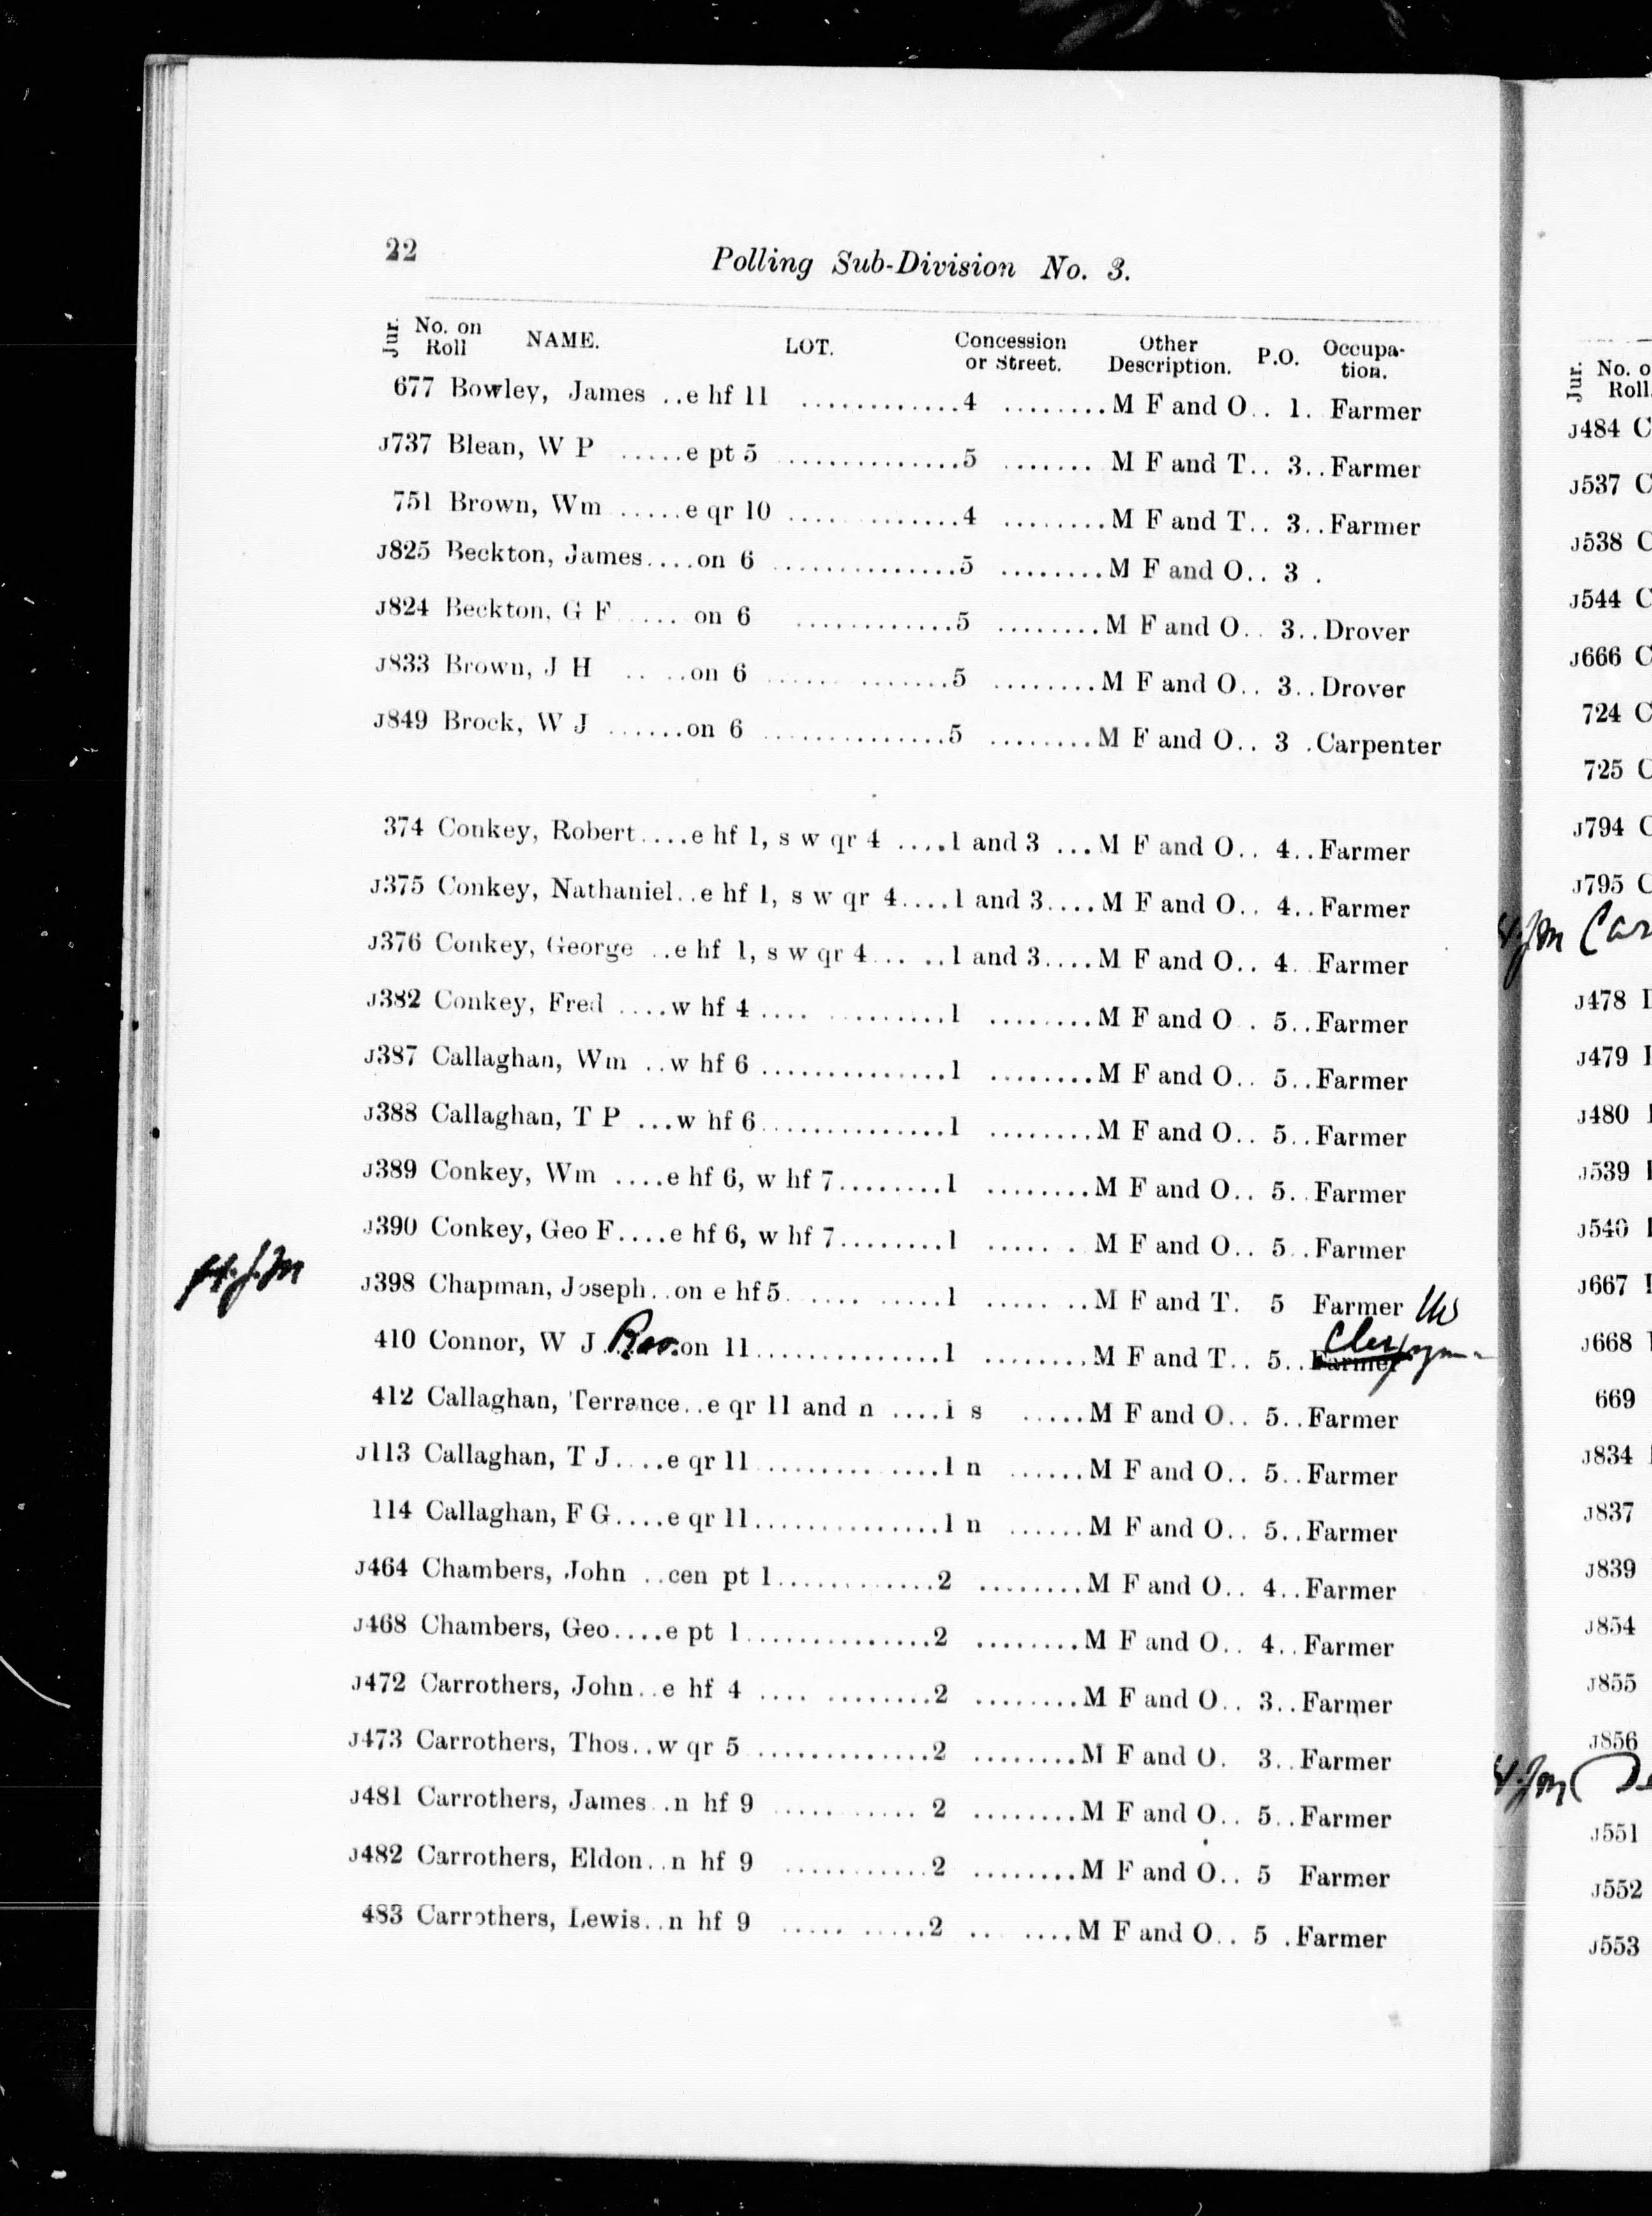 22
Polling Sub-Division No. 3.
Jur. No. on Roll NAME. LOT. Concession or Street. Other Description. P.O. Occupa-tion.
677 Bowley, James ..e hf 11 ............4 ........M F and O.. 1. Farmer
J737 Blean, W P .....e pt 5 ..............5 ....... M F and T.. 3..Farmer
751 Brown, Wm .....e qr 10 .............4 ........M F and T.. 3..Farmer
J825 Beckton, James....on 6 ..............5 ........M F and O.. 3 .
J824 Beckton, G F ..... on 6 ............5 ........M F and O.. 3..Drover
J833 Brown, J H .. ..on 6 ..............5 ........M F and O.. 3..Drover
J849 Brock, W J ......on 6 ..............5 ........M F and O.. 3 .Carpenter
374 Conkey, Robert....e hf 1, s w qr 4 ....1 and 3 ...M F and O.. 4..Farmer
J375 Conkey, Nathaniel..e hf 1, s w qr 4....1 and 3....M F and O.. 4..Farmer
J376 Conkey, George ..e hf 1, s w qr 4... ..1 and 3....M F and O.. 4. Farmer
J382 Conkey, Fred ....w hf 4 .... .........1 ........M F and O . 5..Farmer
J387 Callaghan, Wm ..w hf 6 ..............1 ........M F and O.. 5..Farmer
J388 Callaghan, T P ...w hf 6..............1 ........M F and O.. 5..Farmer
J389 Conkey, Wm ....e hf 6, w hf 7........1 ........M F and O.. 5. .Farmer
J390 Conkey, Geo F....e hf 6, w hf 7........1 ...... . M F and O.. 5. .Farmer
H.J.M J398 Chapman, Joseph..on e hf 5. .... ......1 ..... ..M F and T. 5 Farmer
410 Connor, W J Rev. on 11..............1 ........M F and T.. 5..Farmer Clergym-
412 Callaghan, Terrance..e qr 11 and n ....1 s .....M F and O.. 5..Farmer
J113 Callaghan, T J....e qr 11 ......... ....1 n ......M F and O.. 5..Farmer
114 Callaghan, F G....e qr 11..............1 n ......M F and O.. 5..Farmer
J464 Chambers, John ..cen pt 1............2 ........M F and O.. 4..Farmer
J468 Chambers, Geo....e pt 1..............2 ........M F and O.. 4..Farmer
J472 Carrothers, John..e hf 4 .... ........2 ........M F and O.. 3..Farmer
J473 Carrothers, Thos..w qr 5 .............2 ........M F and O. 3..Farmer
J481 Carrothers, James..n hf 9 ........... 2 ........M F and O.. 5..Farmer
J482 Carrothers, Eldon..n hf 9 ...........2 ........M F and O.. 5 Farmer
483 Carrothers, Lewis..n hf 9 ..... .....2 .. ....M F and O.. 5 .Farmer
Jur. No. o
Roll.
J484 C
J537 C
J538 C
J544 C
J666 C
724 C
725 C
J794 C
J795 C
Car
J478
J479
J480
J539
J540
J667
J668
669
J834
J837
J839
J854
J855
J856
J551
J552
J553